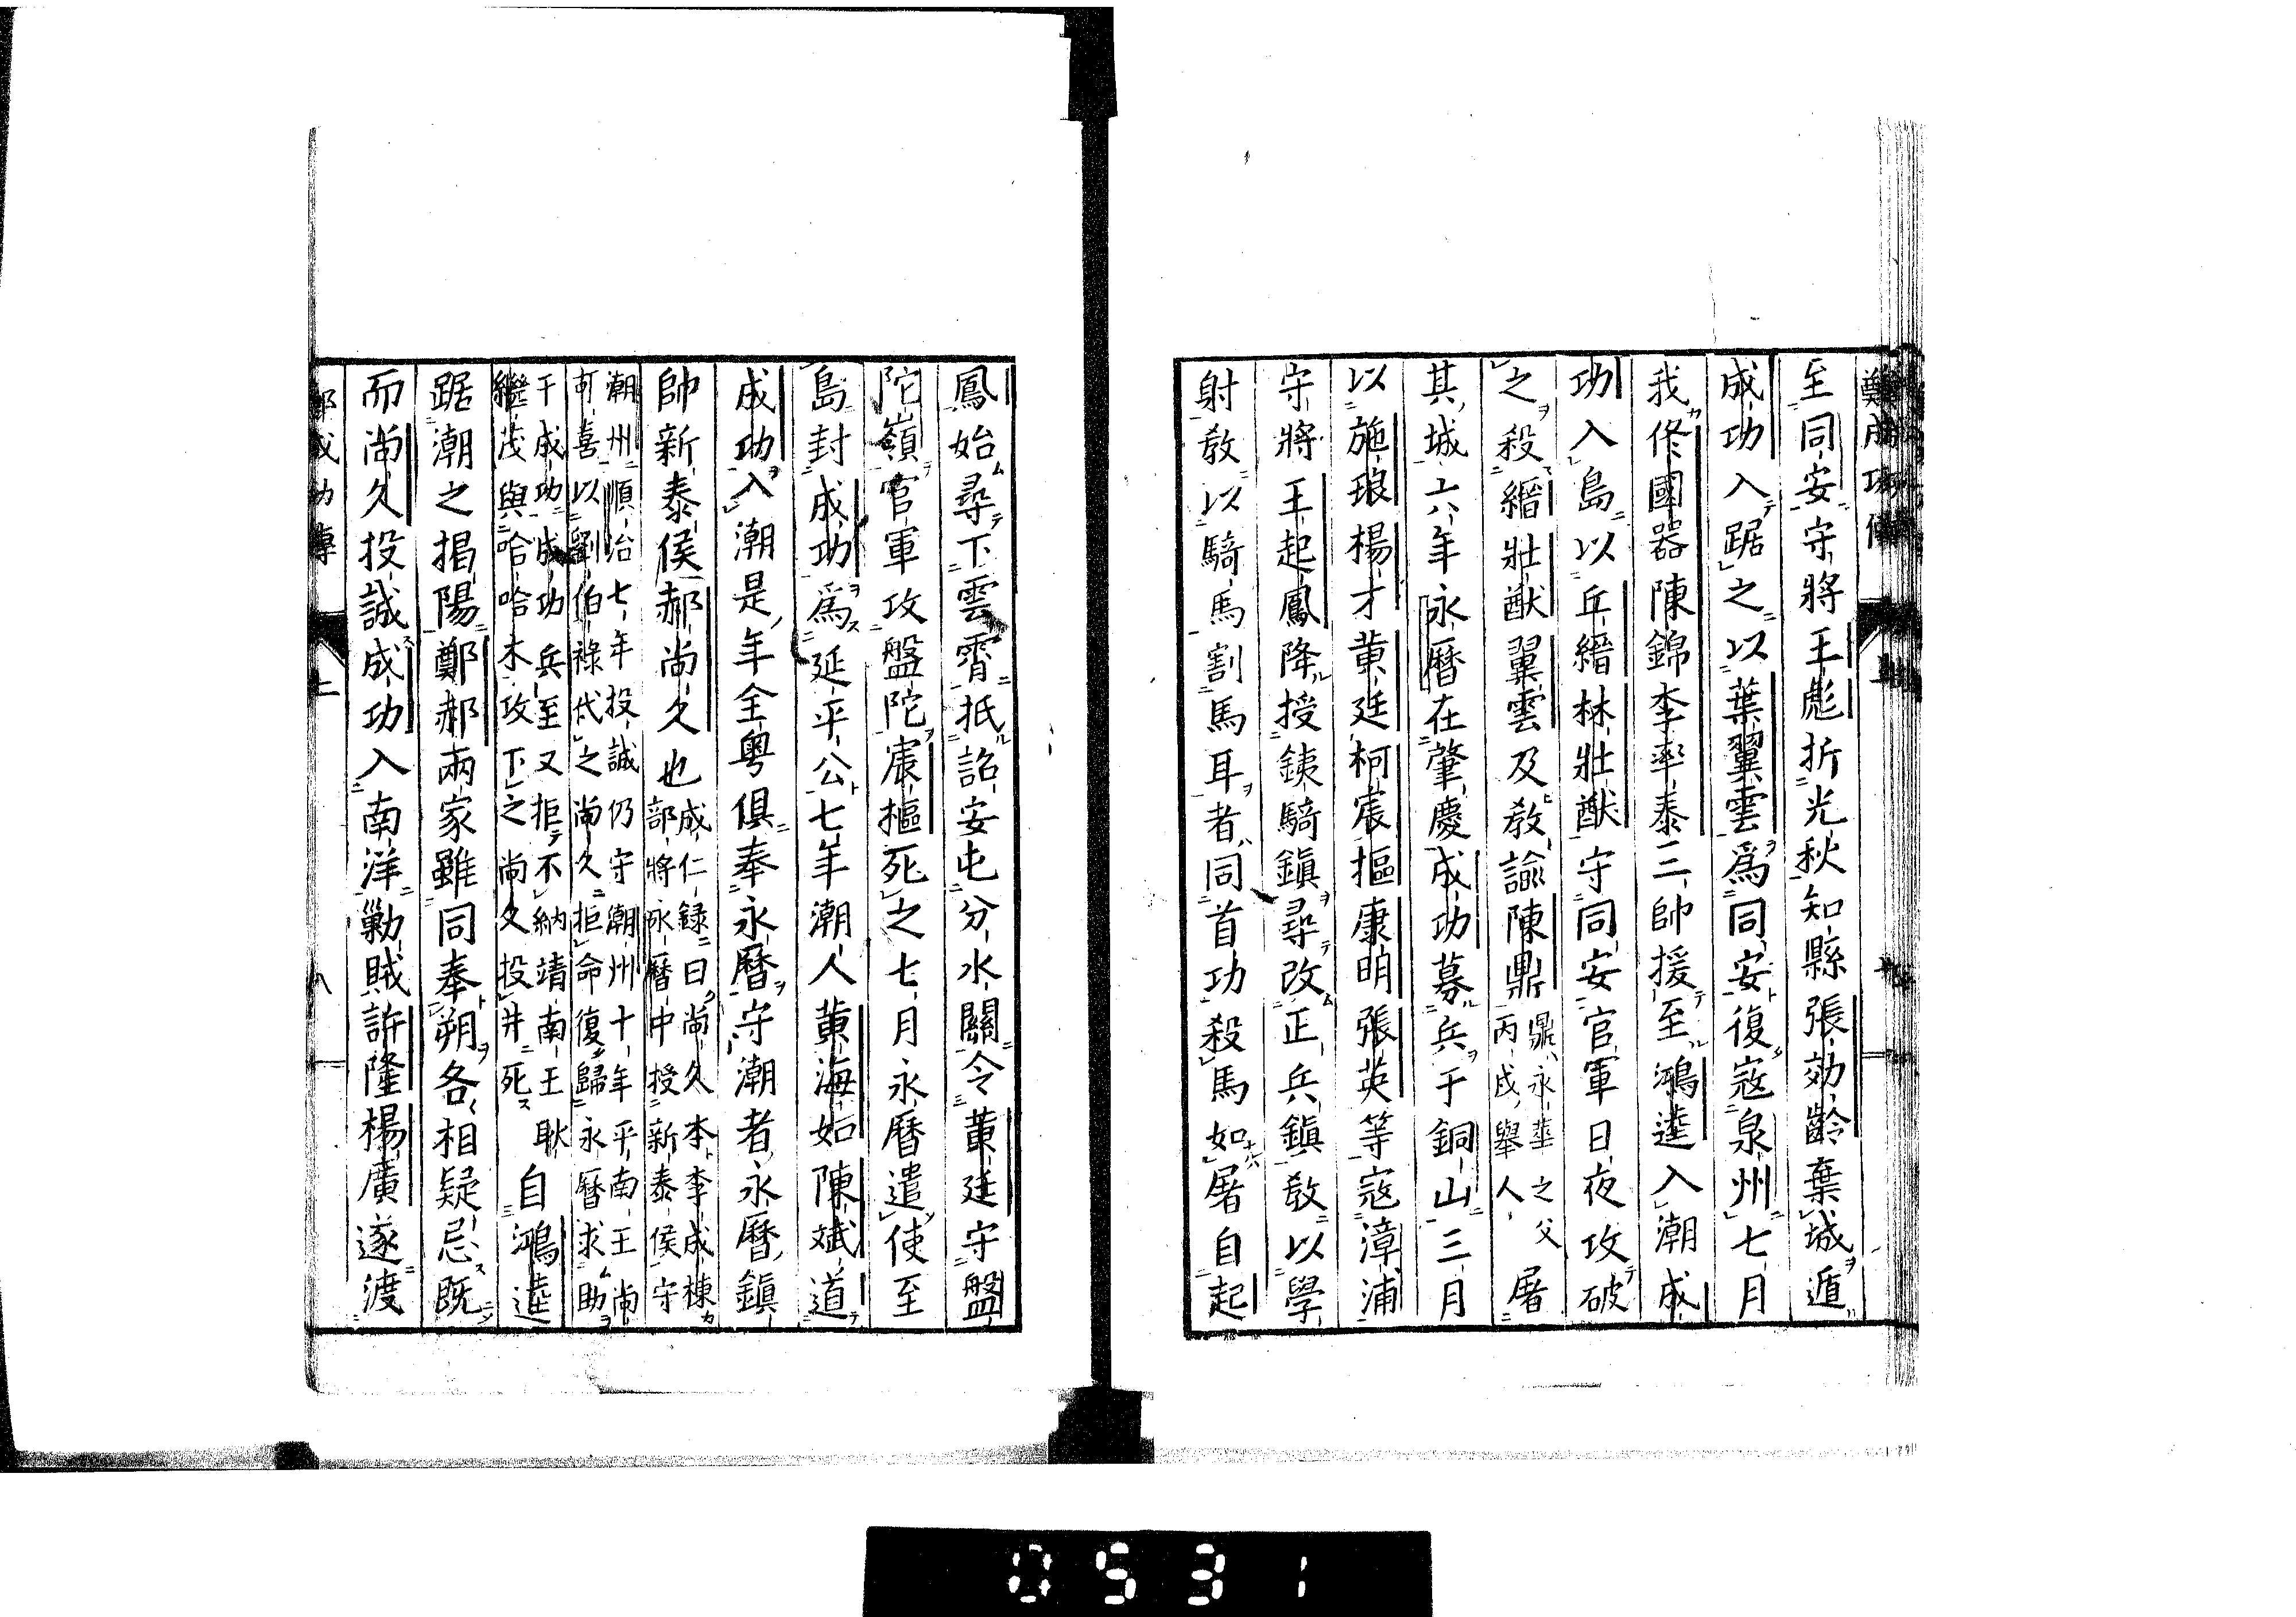 鄭成功傳
至同安守將王彪折光秋知縣張効齡葉城遁
成功入踞之以葉翼雲爲同安復寇泉州七月
我佟國器陳錦李率泰三帥援至鴻逵入潮成
功入島以丘縉林壯猷守同安官軍日夜攻破
之殺縉壯猷翼雲及教諭陳鼎鼎永華之父
丙戌舉人屠
其城六年永曆在肇慶成功募兵于銅山三月
以施琅楊才黄廷柯宸樞康明張英等寇漳浦
守將王起鳳降授銕騎鎮尋改正兵鎮教以學
射教以騎馬割馬耳者同首功殺馬如屠自起
鳳始尋下雲霄抵詔安屯分水關令黄廷守盤
陀嶺官軍攻盤陀宸樞死之七月永曆遣使至
島封成功爲延平公七年潮人黄海如陳斌道
成功入潮是年全粤俱奉永曆守潮者永曆鎮
帥新泰侯郝尚久也成仁録曰尚久本李成棟
部將永曆中授新泰侯守
潮州順治七年投誠仍守潮州十年平南王尚
可喜以劉伯祿代之尚久拒命復歸永曆求助
于成功成功兵至又拒不納靖南王耿
繼茂與哈哈木攻下之尚久投井死自鴻逵
踞潮之揭陽鄭郝兩家雖同奉朔各相疑忌既
而尚久投誠成功入南洋勦賊許隆楊廣遂渡
上
八
0531